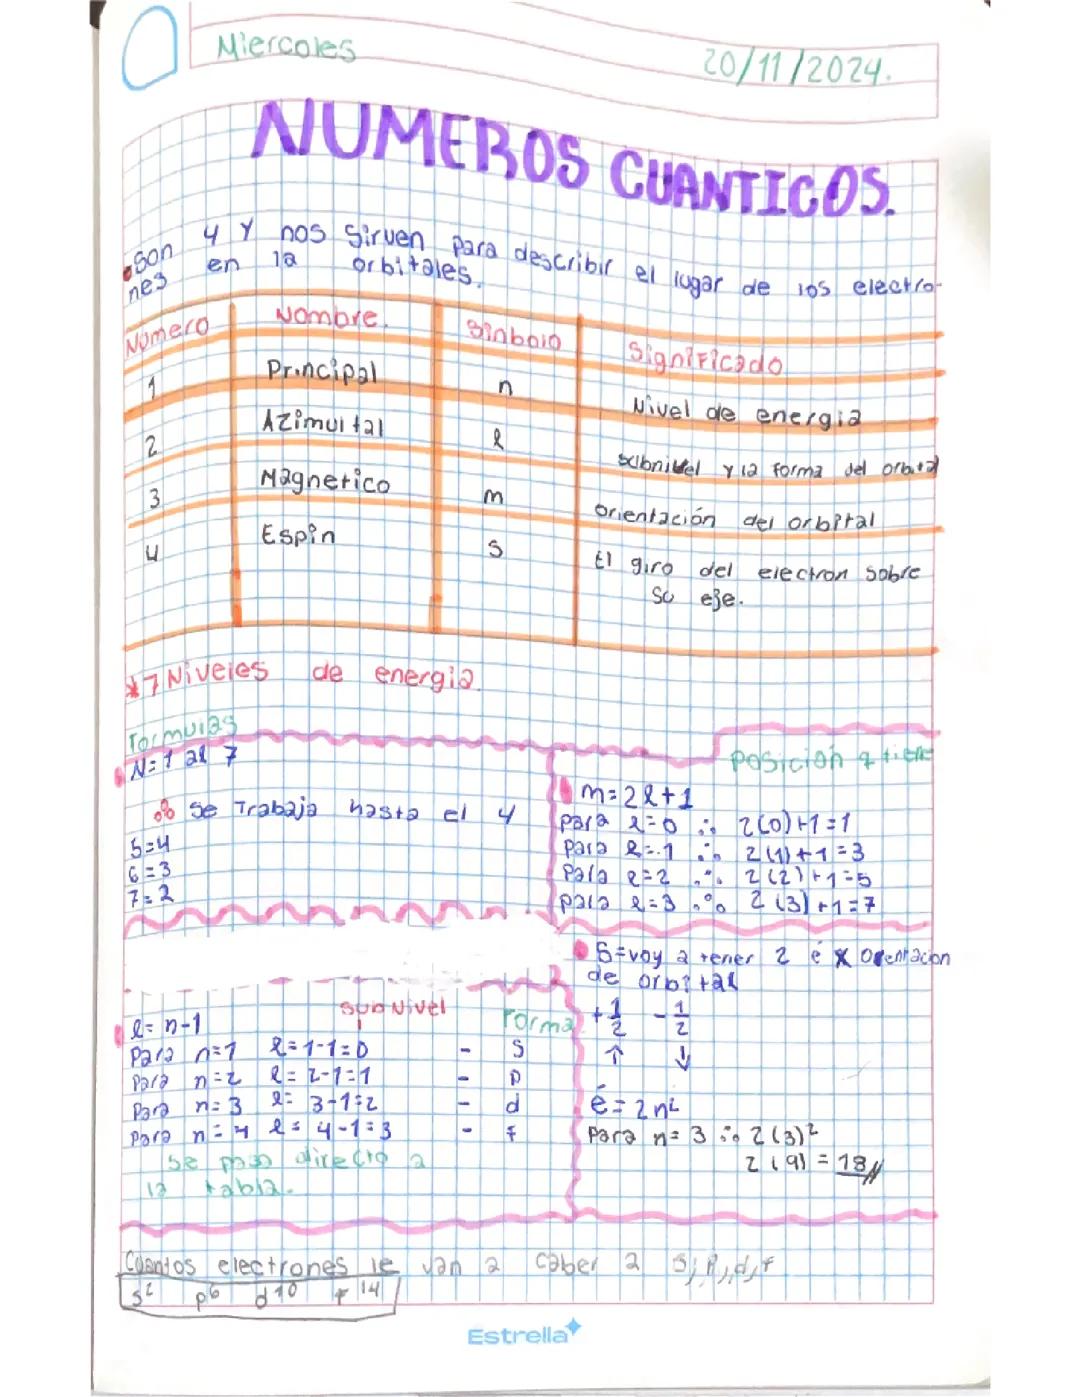 Miercoles
20/11/2024.
NUMEROS CUANTICOS.
•son 4 y nos sirven para describir el lugar de los electro-
nes en la orbitales.
Número Nombre. Sinbolo Significado
1 Principal n Nivel de energia
2 Azimultal l subnivel y la forma del orbital
3 Magnetico m orientación del orbital
4 Espin s El giro del electron sobre
su eje.
*7 Niveles de energia.
Formulas
N=1 al 7
∴ se Trabaja hasta el 4
5=4
6=3
7=2
Posición q tiene
m=2l+1
para l=0 ∴ 2(0)+1=1
para l=1 ∴ 2(1)+1=3
Para l=2 ∴ 2(2)+1=5
para l=3 ∴ 2(3)+1=7
S=voy a tener 2 é x Orentacion
de orbital
+1/2 -1/2
↑ ↓
é=2n²
Para n=3 ∴ 2(3)²
2(9)=18//
Sub Nivel
Forma
l=n-1
Para n=1 l=1-1=0 - S
Para n=2 l=2-1=1 - P
Para n=3 l=3-1=2 - d
Para n=4 l=4-1=3 - f
Se paso directo a
la tabla.
Cuantos electrones le van a caber a S,P,d,f
s² p⁶ d¹⁰ f¹⁴
Estrella